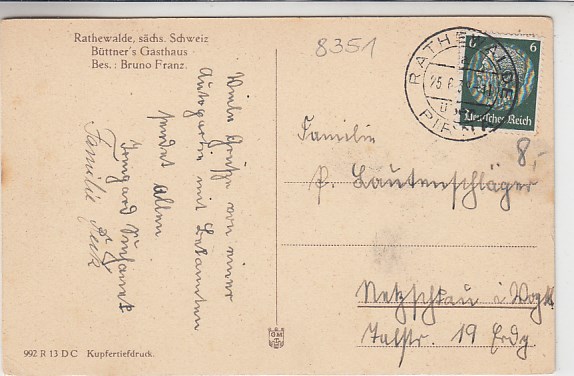 Rathewalde, sächs. Schweiz
Büttner's Gasthaus
Bes.: Bruno Franz.
8351
Viele Grüße von einer
Autopartie mit Bekannten
sendet allen
Irmgard
Familie
RATHEWALDE
PIRNA
6 6
Deutsches Reich
8,-
Familie
P. Lautenschläger
Netzschkau i. Vogtl.
Talstr. 19 Erdg.
992 R 13 D C Kupfertiefdruck.